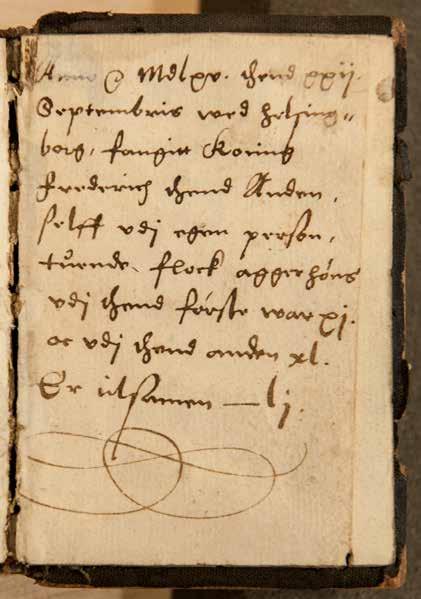 Anno Mdlxv. thend xxij.
Septembris wed Helsing=
borg, fangitt Koning
Frederich thend Anden,
selff vdj egen person,
tuende flock aggerhóns
vdj thend fórste war xj.
oc vdj thend anden xl.
Er tilsamen — lj.